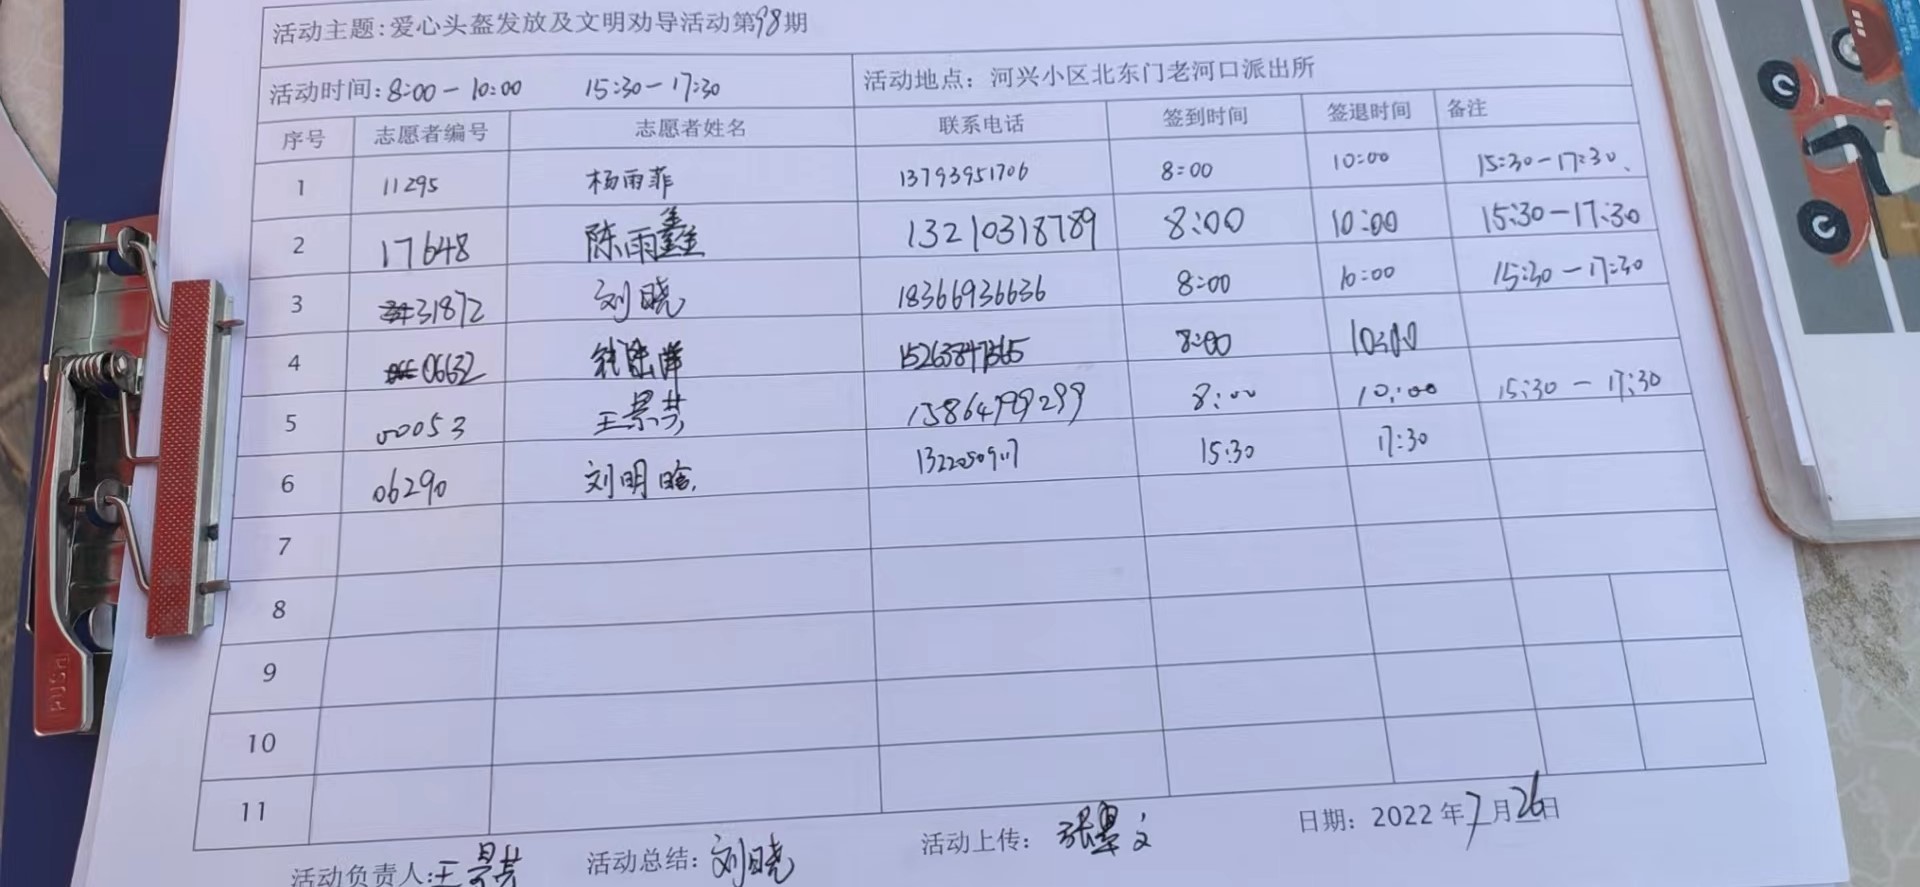 活动主题:爱心头盔发放及文明劝导活动第98期
活动时间:8:00-10:00 15:30-17:30 活动地点:河兴小区北东门老河口派出所
序号 志愿者编号 志愿者姓名 联系电话 签到时间 签退时间 备注
1 11295 杨雨菲 13793951706 8:00 10:00 15:30-17:30、
2 17648 陈雨鑫 13210318789 8:00 10:00 15:30-17:30
3 31872 刘晓 18366936636 8:00 10:00 15:30-17:30
4 06632 8:00 10:00
5 00053 王景芸 8:00 10:00 15:30-17:30
6 06290 刘明晗 15:30 17:30
7
8
9
10
11
活动负责人:王景芸 活动总结:刘晓 活动上传: 日期:2022年7月26日
PUSH